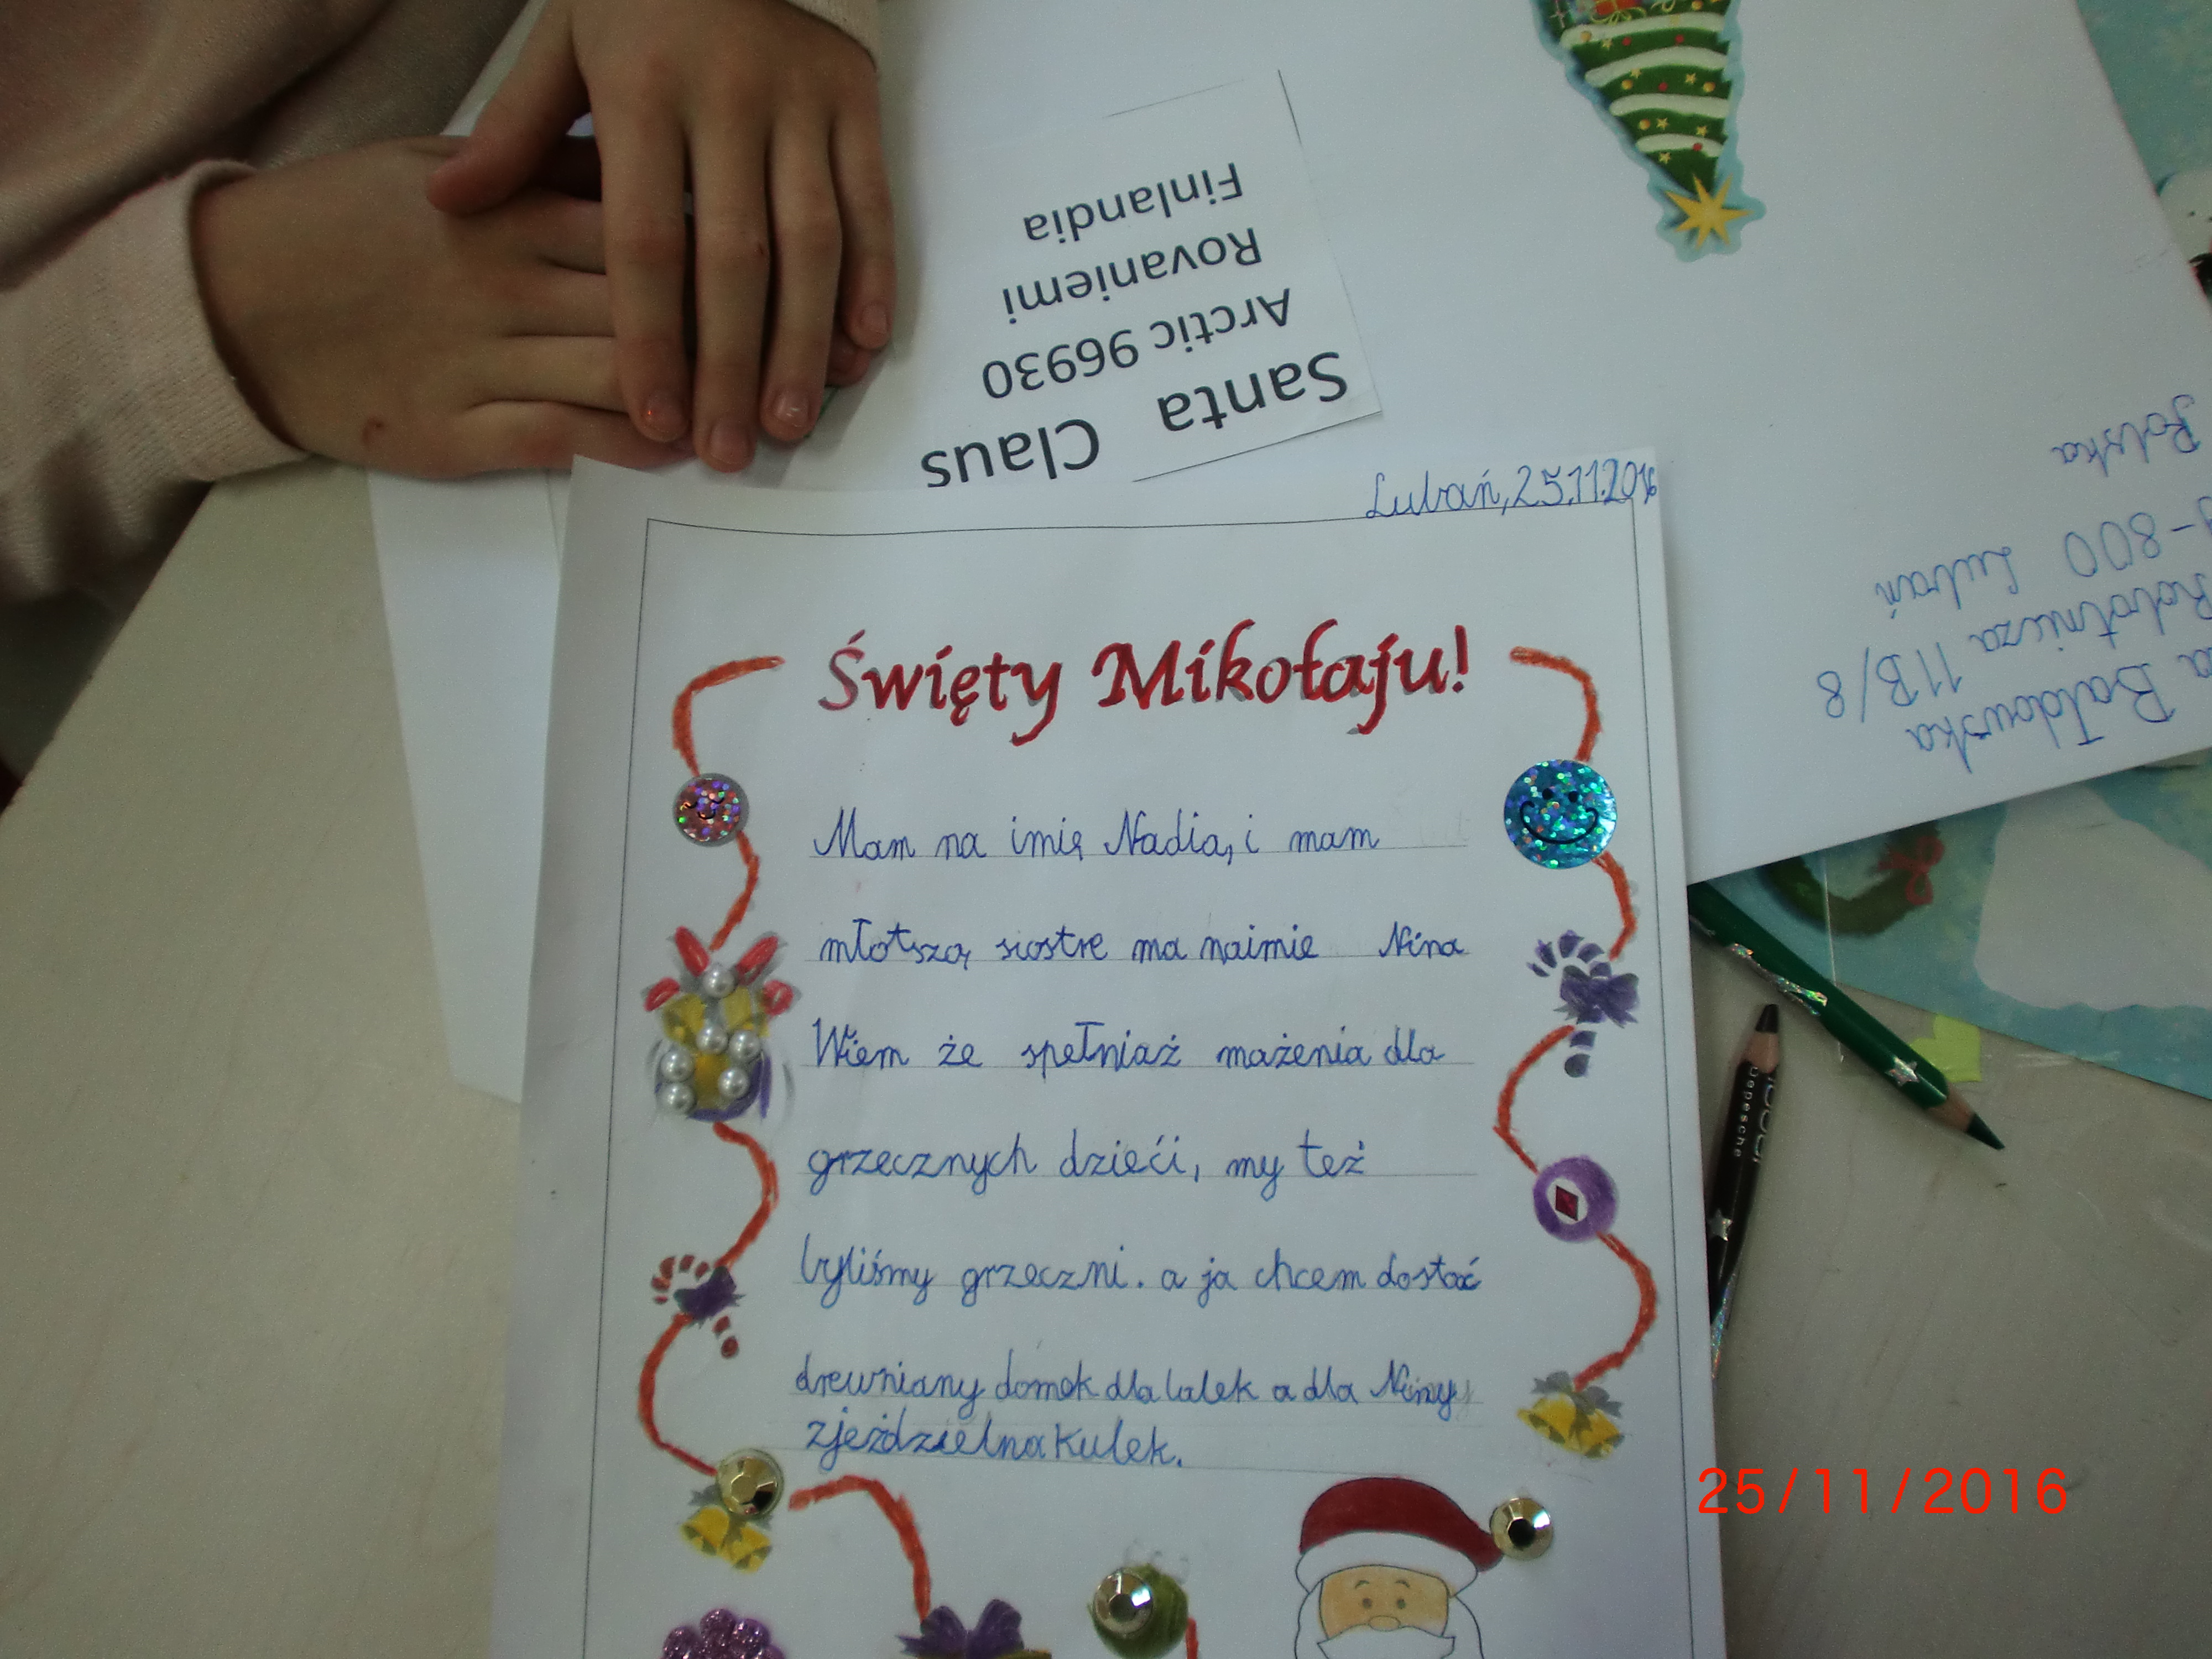 Santa Claus
Arctic 96930
Rovaniemi
Finlandia
Bałdowska
Robotnicza 11B/8
-800 Lubań
Polska
Lubań, 25.11.2016
Święty Mikołaju!
Mam na imię Nadia, i mam
młotszą siostre ma naimie Nina
Wiem że spełniaż mażenia dla
grzecznych dzieći, my też
byliśmy grzeczni. a ja chcem dostać
drewniany domek dla lalek a dla Niny
zjeżdzielna kulek.
Depesche
25/11/2016